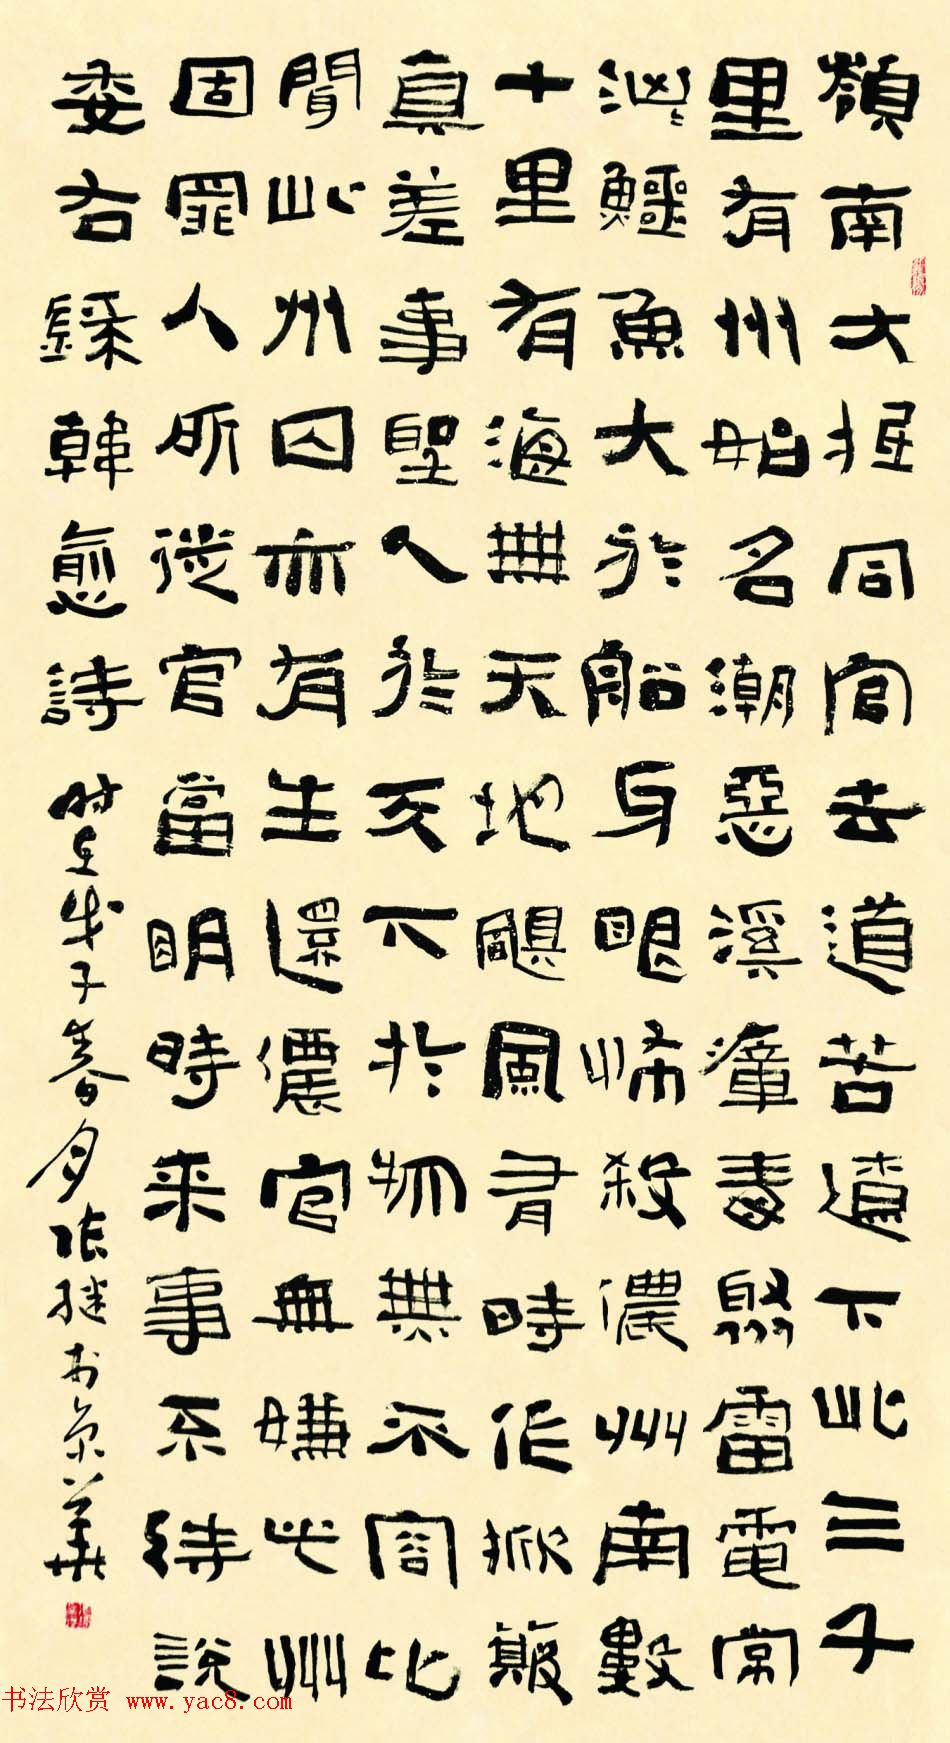 嶺南大抵同官去道苦遼下此三千
里有州始名潮惡溪瘴毒聚雷電常
洶鱷魚大於船牙眼怖殺儂州南數
十里有海無天地颶風有時作掀簸
真差事聖人於天下於物無不容比
聞此州囚亦有生還儂官無嫌此州
固罪人所徙官當明時来事不待說
委右錄韓愈詩
时在戊子春月張继於京華
书法欣赏 www.yac8.com